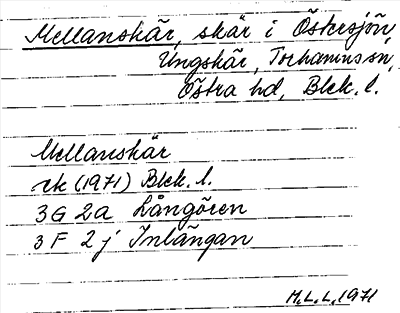 Mellanskär, skär i Östersjön,
Ungskär, Torhamns sn,
Östra hd, Blek. l.
Mellanskär
rk (1971) Blek. l.
3G 2a Långören
3F 2j Inlängan
M.L.L. 1971